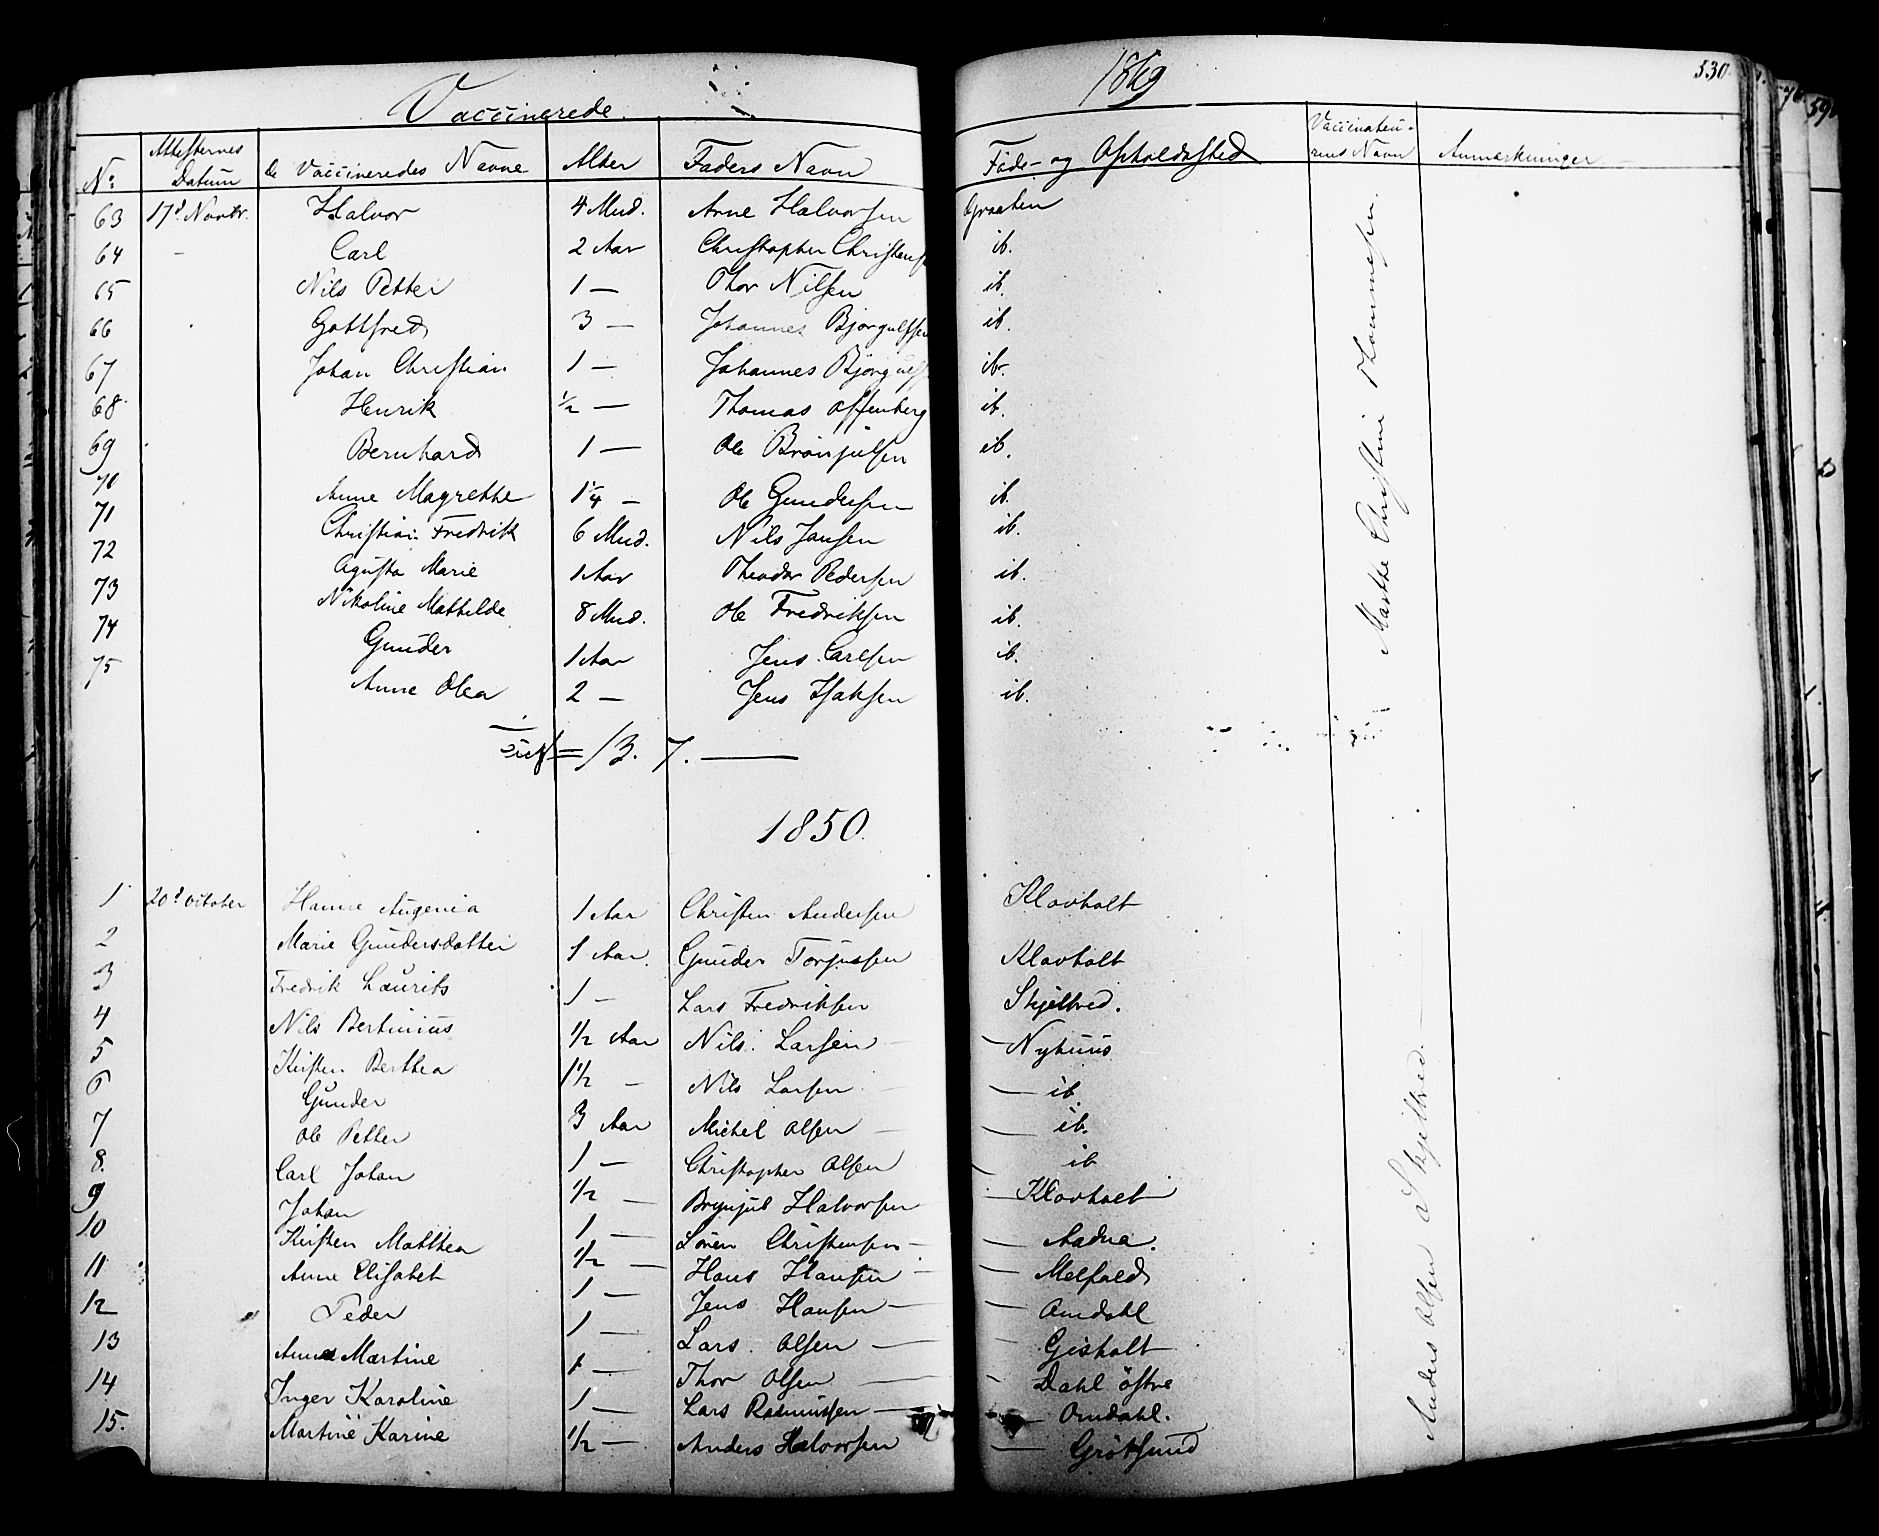 Vaccinerede. 1849 530
No Attesternes Datum de Vaccineredes Navne Alter Faders Navn Föde- og Opholdssted Vaccinateurens Navn Anmærkninger
63 17d Novbr. Halvor 4 Mnd. Arne Halvorsen Graaten
64 - Carl 2 Aar Christopher Christens ib.
65 Nils Petter 1 — Thor Nilsen ib.
66 Gottfred 3 — Johannes Bjorgulfsen ib.
67 Johan Christian 1 — Johannes Björgulfs ib.
68 Henrik ½ — Thomas Offenberg ib.
69 Bernhard 1 — Ole Brönjulsen ib.
70 Anne Magrethe 1¼ — Ole Gundersen ib.
71 Christian Fredrik 6 Mnd. Nils Jansen ib.
72 Agusta Marie 1 Aar Theodor Pedersen ib.
73 Nikoline Mathilde 8 Mnd. Ole Fredriksen ib.
74 Gunder 1 Aar Jens Carlsen ib.
75 Anne Olea 2 — Jens Isaksen ib.
Marthe Christine Hannesen
= 13. 7. —
1850.
1 20d October Hanne Augenia 1 Aar Christen Andersen Klovholt
2 Marie Gundersdatter 1 Aar Gunder Torjussen Klovholt
3 Fredrik Laurits 1 — Lars Fredriksen Skjelbred.
4 Nils Bertinius ½ Aar Nils Larsen — Nyhuus
5 Kirsten Berthea 1½ — Nils Larsen — ib.
6 Gunder 3 Aar Michel Olsen — ib.
7 Ole Petter 1 — Christopher Olsen — ib
8. Carl Johan ½ — Brynjul Halvorsen — Klovholt
9 Johan 1 — Sören Christensen — Aadna.
10 Kirsten Matthea ½ — Hans Hansen — Melfald
11 Anne Elisabet 1 — Jens Hansen — Omdahl
12 Peder 1 — Lars Olsen — Gisholt
13 Anne Martine 1 — Thor Olsen — Dahl östre
14 Inger Karoline 1 — Lars Rasmussen — Omdahl.
15. Martine Karine ½ — Anders Halvorsen — Grötsund
Anders Olsen a Skjelbred.